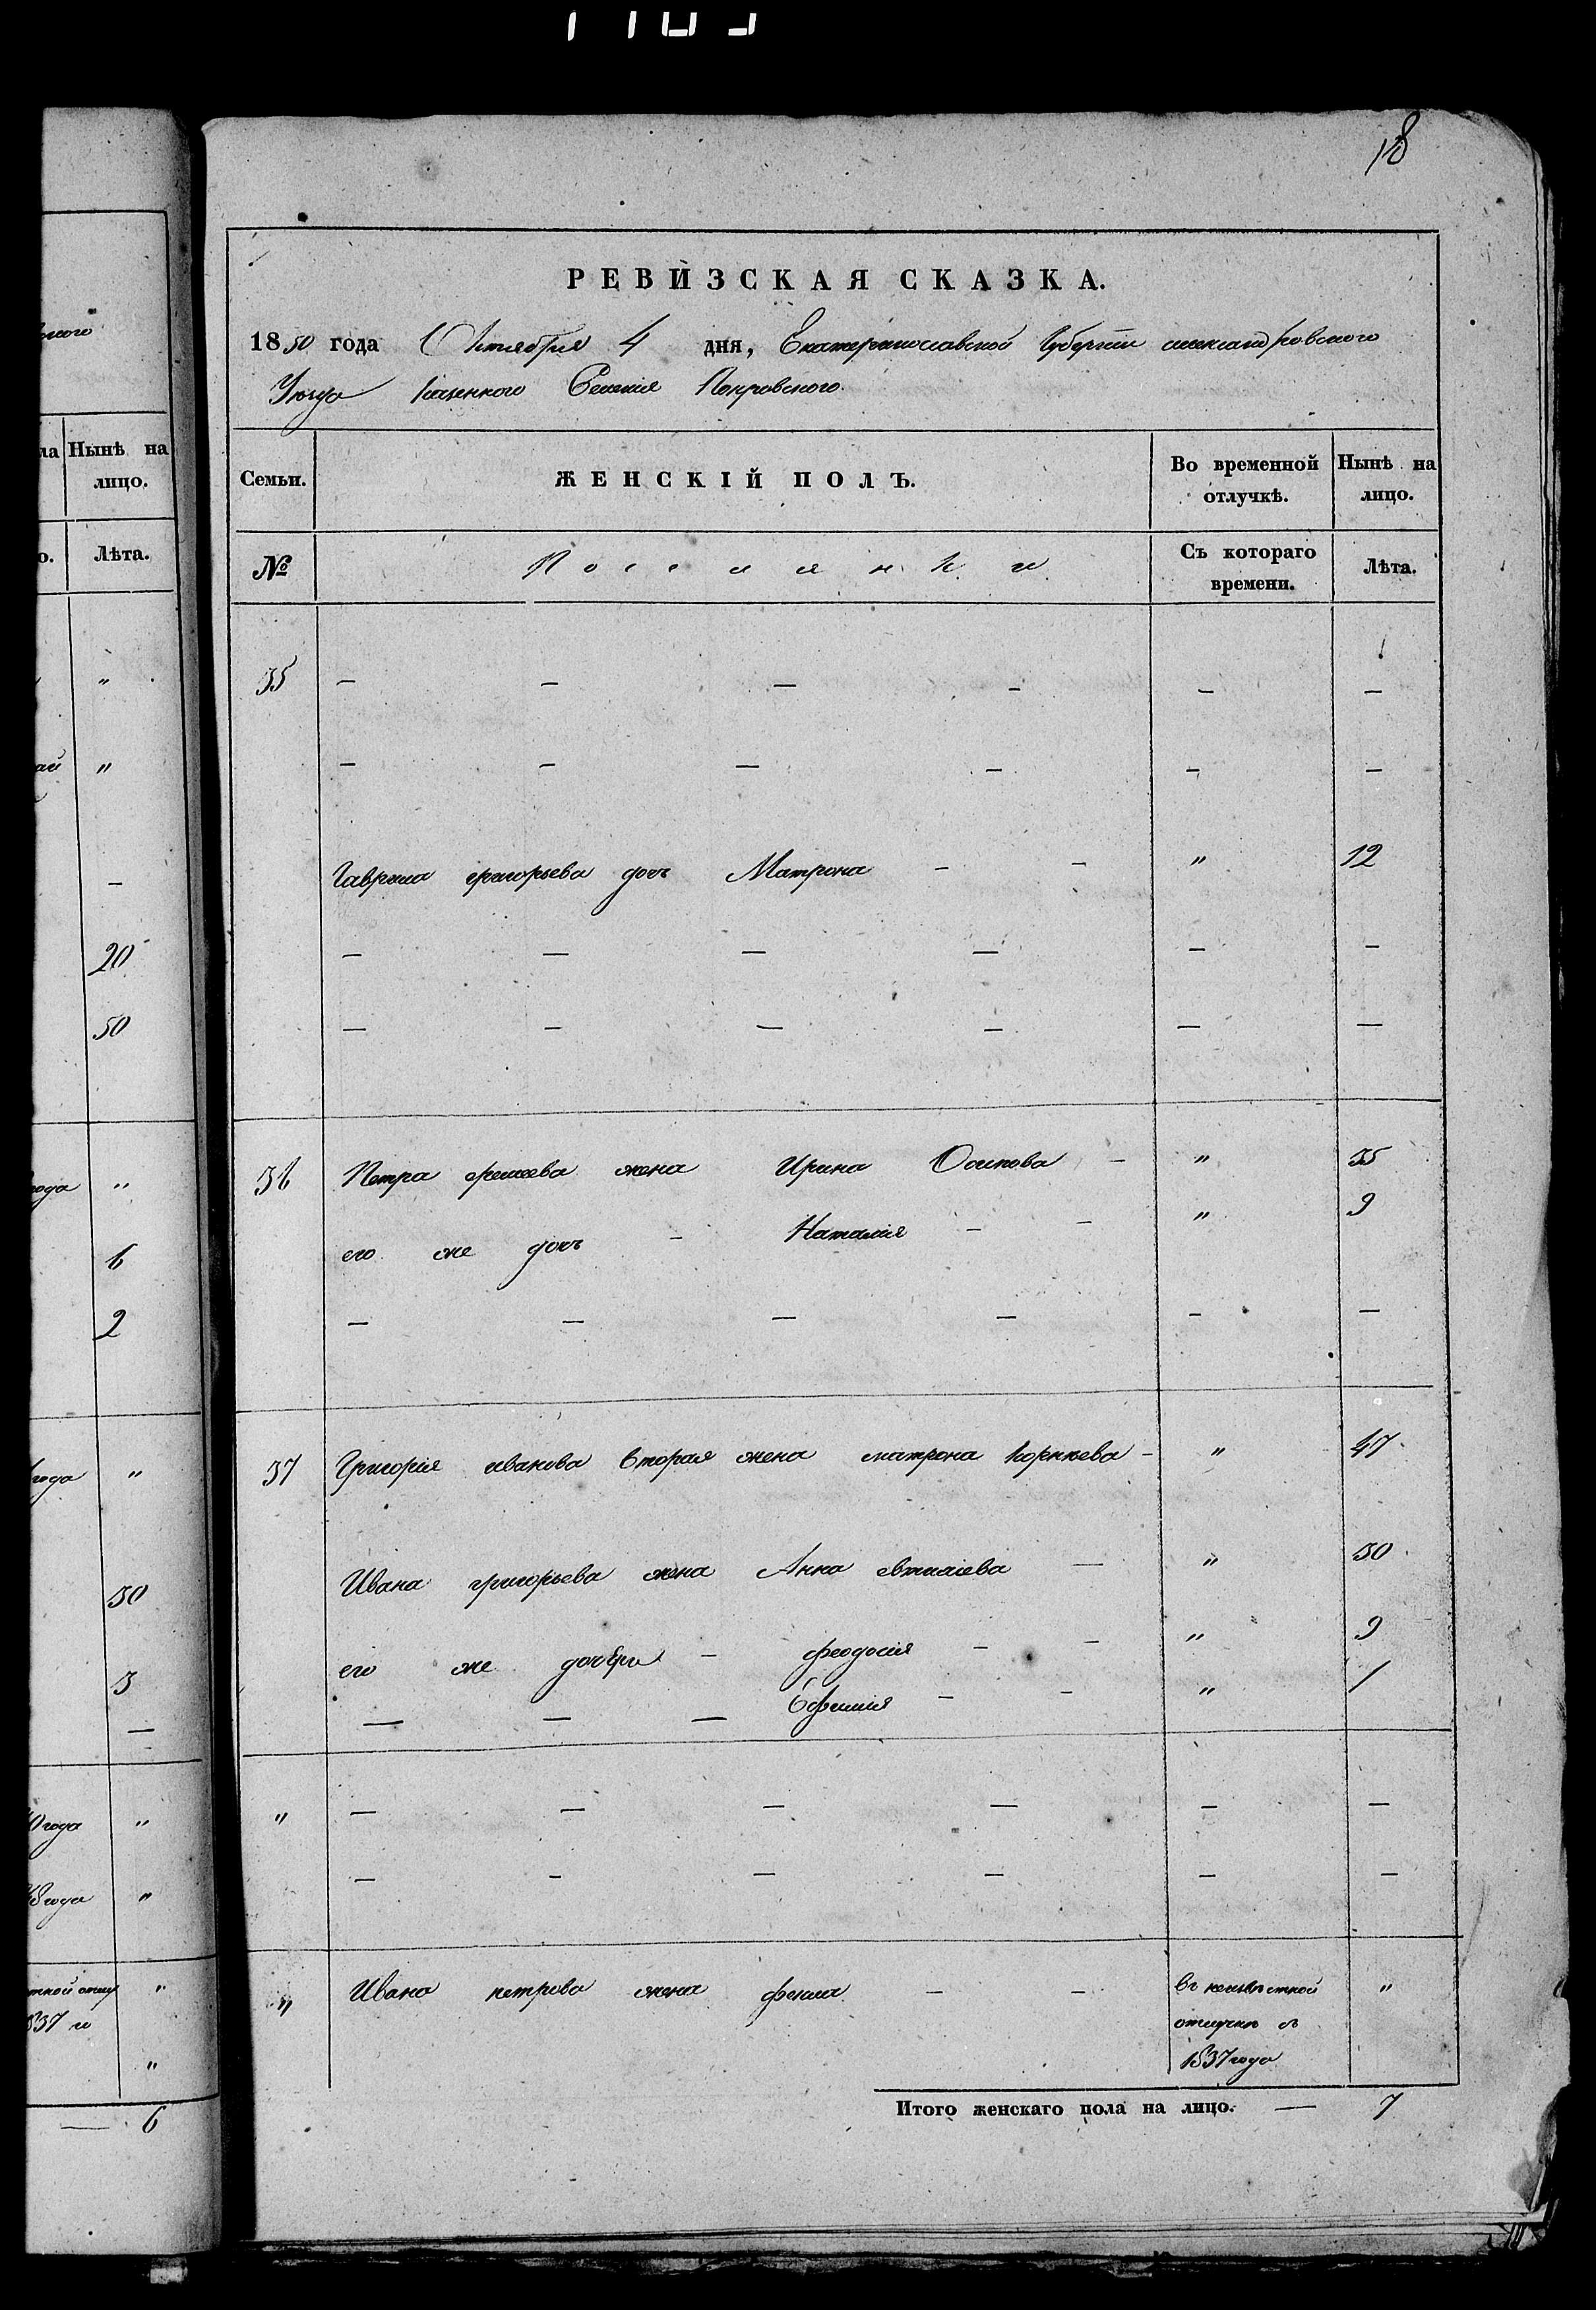 18
РЕВИЗСКАЯ СКАЗКА.
1850 года Октября 4 дня, Екатеринославской Губернии александровского
Уезда Казенного Селения Покровского.
Семьи.
ЖЕНСКІЙ ПОЛЪ.
Во временной отлучкѣ.
Нынѣ на лицо.
№
Поселянки
Съ котораго времени.
Лѣта.
35 — — — — — —
— — — — — —
Гаврила григорьева дочь Матрона — — " 12
— — — — — —
— — — — — —
36 Петра жена Ирина Осипова — " 35
его же дочь — Наталія — — " 9
— — — — — —
37 Григорія иванова вторая жена матрона Корнѣева — " 47
Ивана григорьева жена Анна — " 30
его же дочери — феодосія — — " 9
— — — Ефимія — — " 1
" — — — — — —
— — — — — —
" Ивана петрова жена — — въ неизвѣстной "
отлучкѣ съ
1837 года
Итого женскаго пола на лицо. — 7
Нынѣ на
лицо.
Лѣта.
"
"
—
20
50
года "
6
2
года "
30
3
—
года "
года "
"
37 и
"
— 6